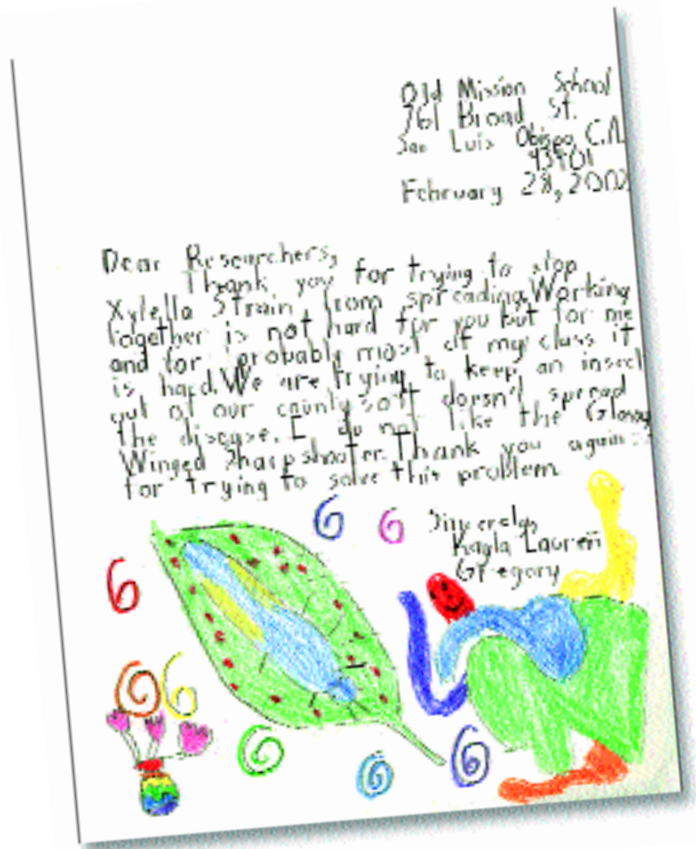 Old Mission School
761 Broad St.
San Luis Obispo, C.A.
93401
February 28, 2002
Dear Researchers,
Thank you for trying to stop
Xylella Strain from spreading. Working
together is not hard for you but for me
and for probably most of my class it
is hard. We are trying to keep an insect
out of our county so it doesn't spread
the disease. I do not like the Glassy
Winged Sharpshooter. Thank you again
for trying to solve this problem
Sincerely,
Kayla Lauren
Gregory
6 6
6
6 6
6 6 6